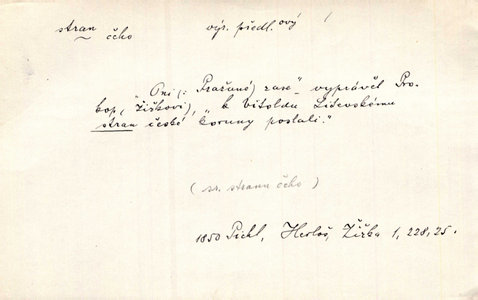 stran čeho výr. předl.ový
„Oni (: Pražané) zase" vyprávěl Pro-
kop („Žižkovi), „k Vitoldu Litevskému
stran české koruny poslali."
(sr. stranu čeho)
1850 Pichl, Herloš, Žižka 1, 228, 25.